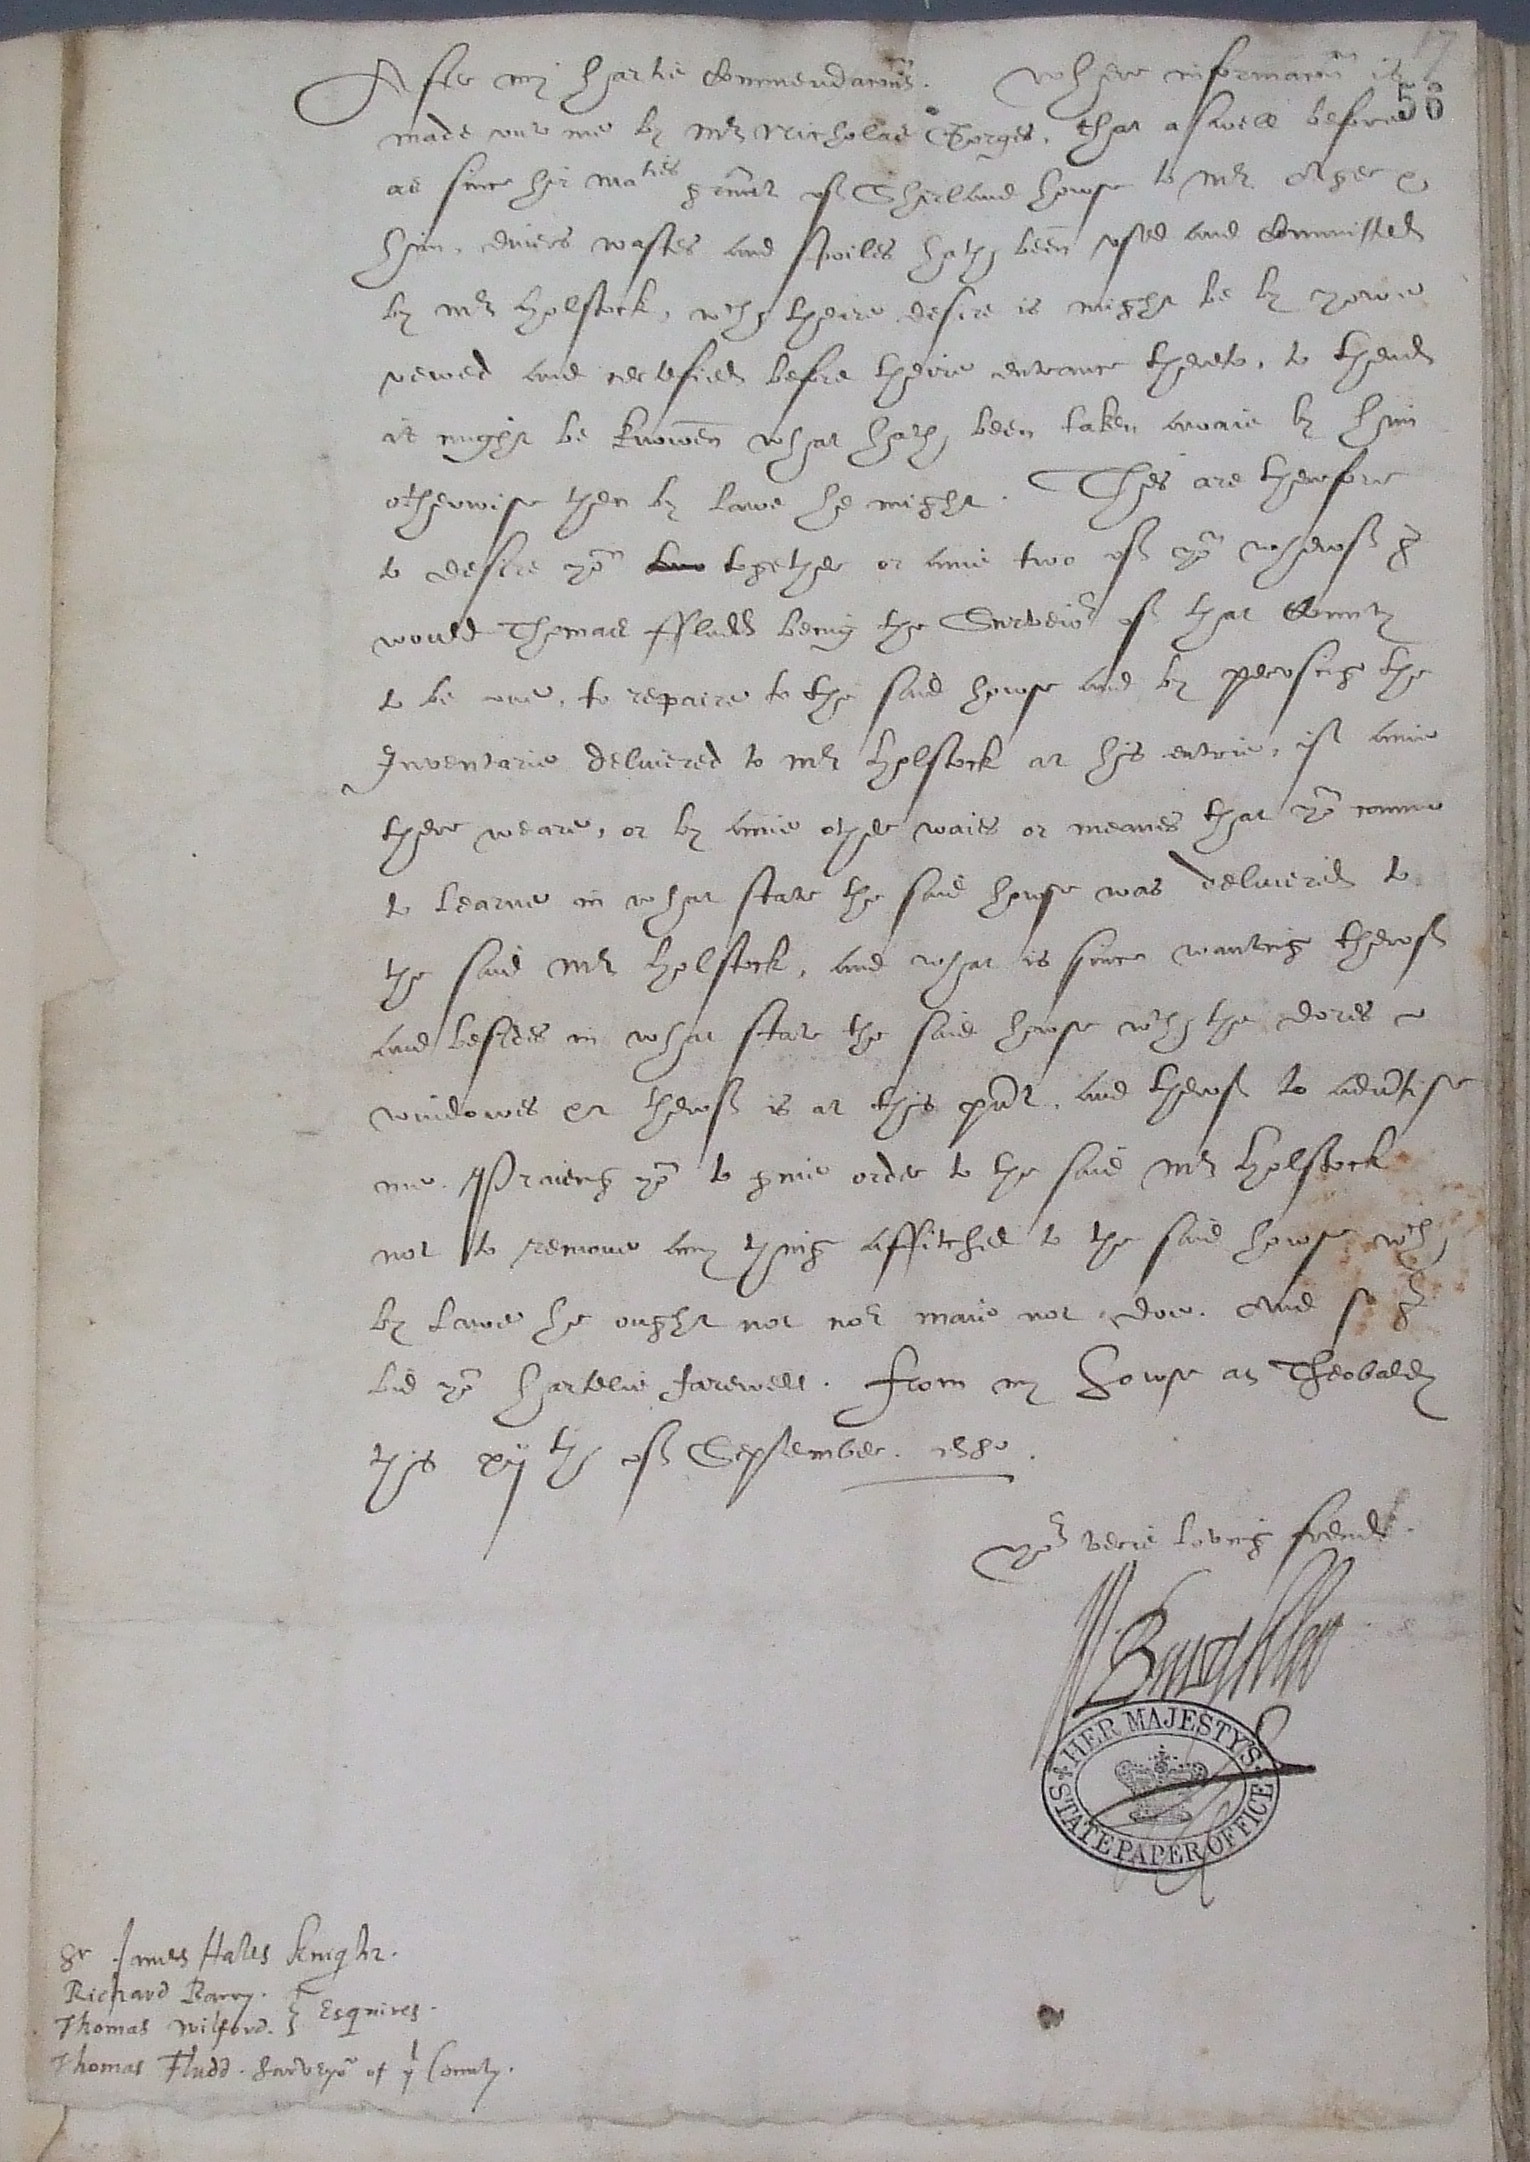 17
56
After my hartie Comendac̃ons. Where informac̃on is
made unto me by Mr Nicholas Gorges, that aswell before
as since her Maties graunt of Shirland howse to Mr Alger &
him, divers wastes and spoiles hath been used and Committed
by Mr Holstock, wch theire desire is might be by yowe
vewed and certefied before theire entrance thereto, to thend
it might be knowen what hath been taken awaie by him
otherwise then by lawe he might. Thes are therefore
to desire yo͠ together or anie two of yo͠ whereof I
would Thomas ffludd being the Surveior of that County
to be one, to repaire to the said howse and by perusing the
Inventarie delivered to Mr Holstock at his entrie, if anie
there weare, or by anie other waies or meanes that yo͠ canne
to learne in what state the said howse was delivered to
the said Mr Holstock, and what is since wanting thereof
and besides in what state the said howse wth the dores &
windowes &c thereof is at this pñt, and thereof to adv̾tise
me. Praieng yo͠ to give order to the said Mr Holstock
not to remove any thing affitched to the said howse wch
by lawe he ought not nor maie not doe. And so I
bid yo͠ hartelie farewell. From my Howse at Theobaldes
this xijth of September. 1580.
yor verie loving frend.
W Burghley
HER MAJESTY'S
STATE PAPER OFFICE
Sr James Hales Knight.
Richard Barry.
Thomas Wilford. } Esquires.
Thomas Fludd. Surveyor of yt County.